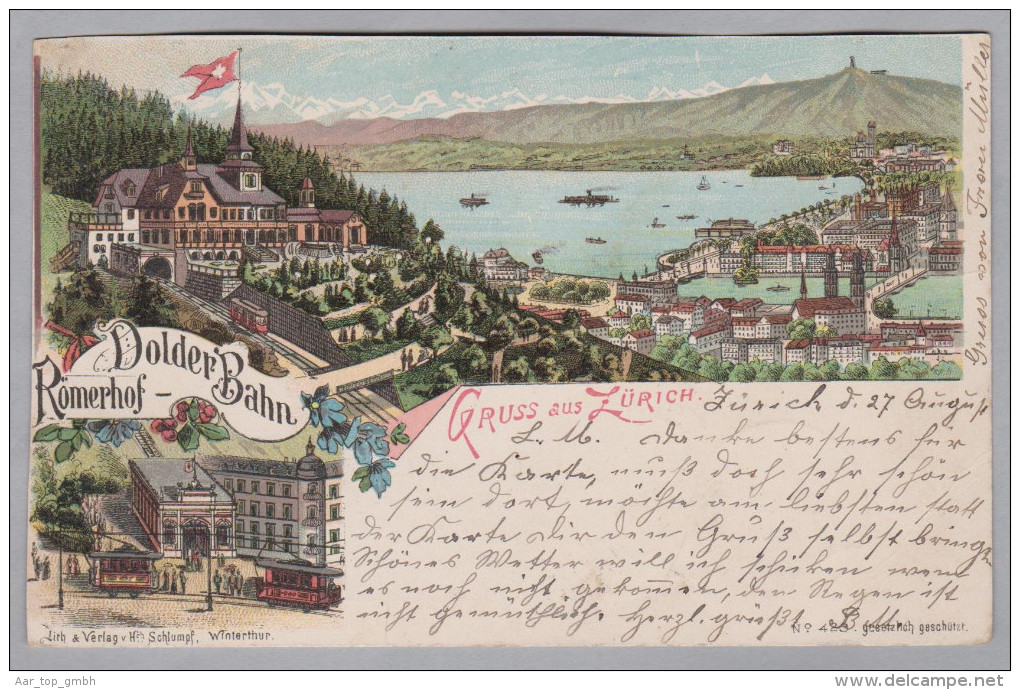 Dolder Bahn
Römerhof -
GRUSS aus ZÜRICH.
Zürich d. 27 August
L. M. Danke bestens für
die Karte, muß doch sehr schön
sein dort, möchte am liebsten statt
der Karte Dir den Gruß selbst bringen
Schönes Wetter will ich schicken wenn
es noch nicht gekommen, den Regen ist
nicht gemüthlich. Herzl. grüßt B M.
Gruss von Frau Müller
Lith & Verlag v. Hch Schlumpf, Winterthur.
No 423. gesetzlich geschützt.
Aar_top_gmbh